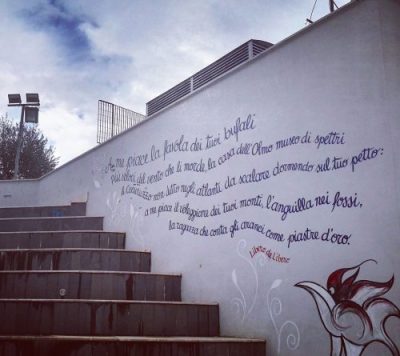 A me piace la favola dei tuoi bufali
più veloci del vento che li morde, la casa dell'Olmo museo di spettri
il Cocuruzzo non sito negli atlanti da scalare dormendo sul tuo petto:
a me piace il villeggione dei tuoi monti, l'anguilla nei fossi,
la ragazza che conta gli aranci come piastre d'oro.
Libero de Libero